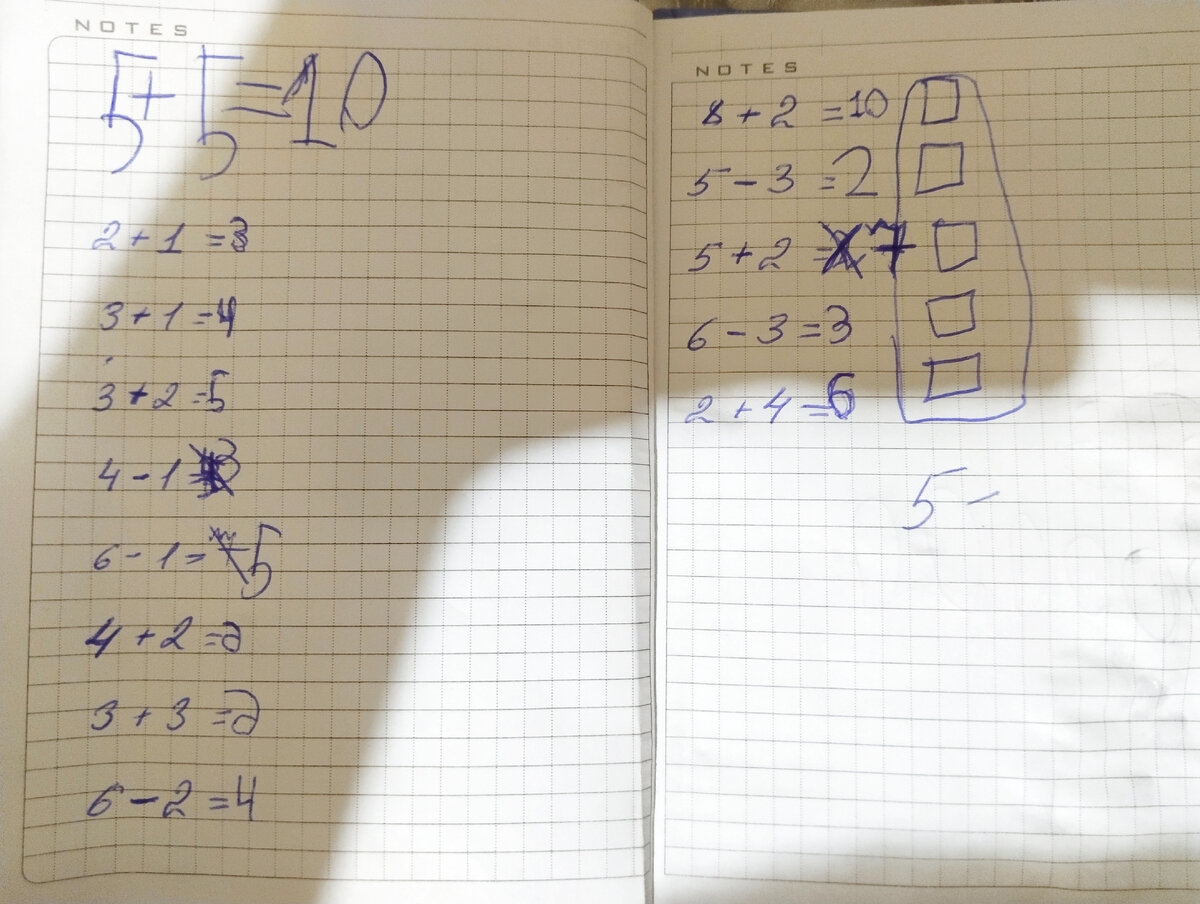 NOTES
5+5=10
2+1=3
3+1=4
3+2=5
4-1=3
6-1=5
4+2=6
3+3=6
6-2=4
NOTES
8+2=10
5-3=2
5+2=7
6-3=3
2+4=6
5-